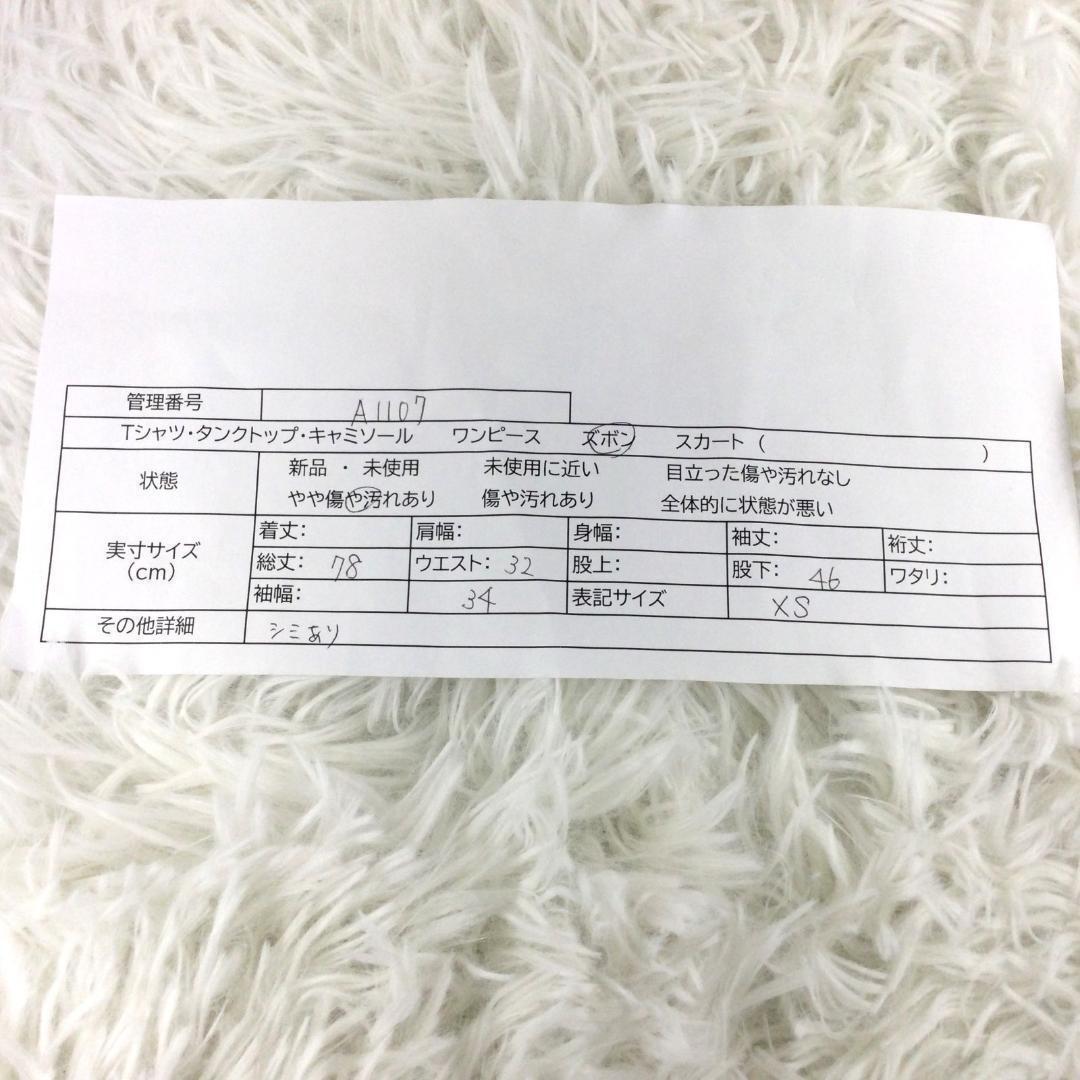 管理番号 A1107
Tシャツ・タンクトップ・キャミソール ワンピース ズボン スカート ( )
状態 新品 ・ 未使用 未使用に近い 目立った傷や汚れなし
やや傷や汚れあり 傷や汚れあり 全体的に状態が悪い
実寸サイズ (cm) 着丈: 肩幅: 身幅: 袖丈: 裄丈:
総丈: 78 ウエスト: 32 股上: 股下: 46 ワタリ:
袖幅: 34 表記サイズ XS
その他詳細 シミあり